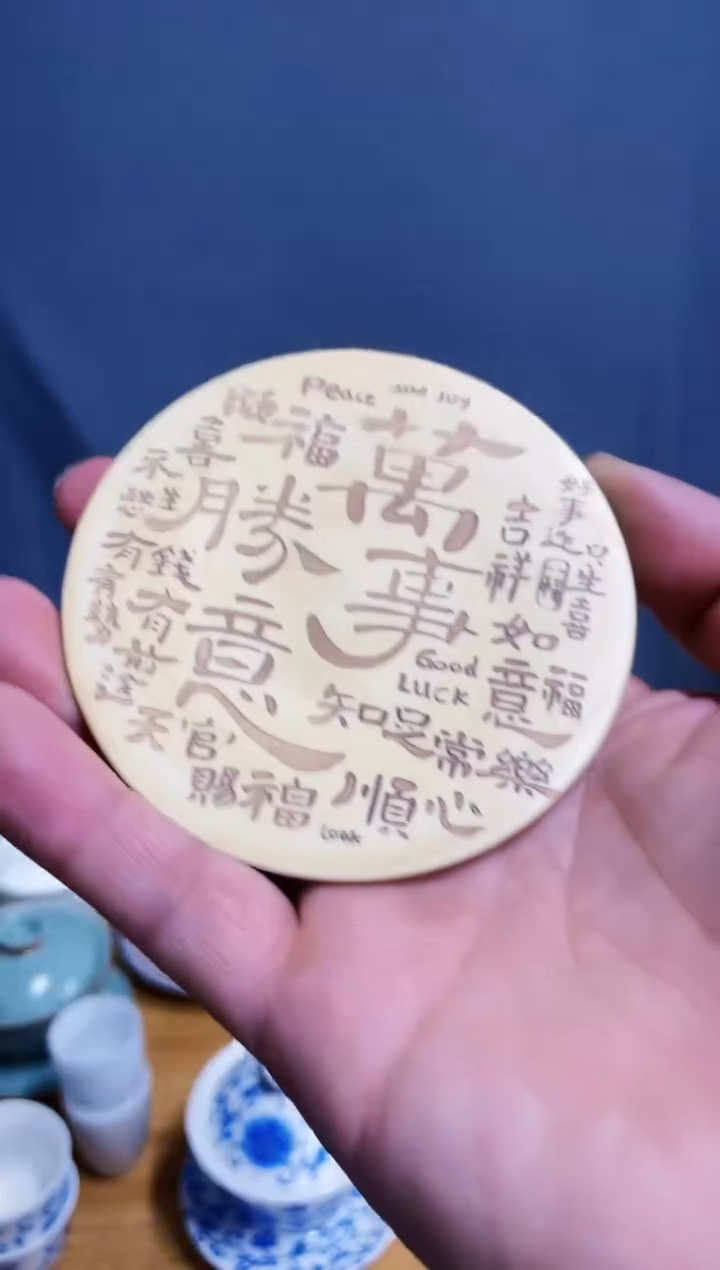 Peace and Joy
順
福
喜
萬事
勝意
吉祥
如意
福
好事
生喜
有錢
有前途
Good
LUCK
知足常樂
天官
賜福
順心
Look